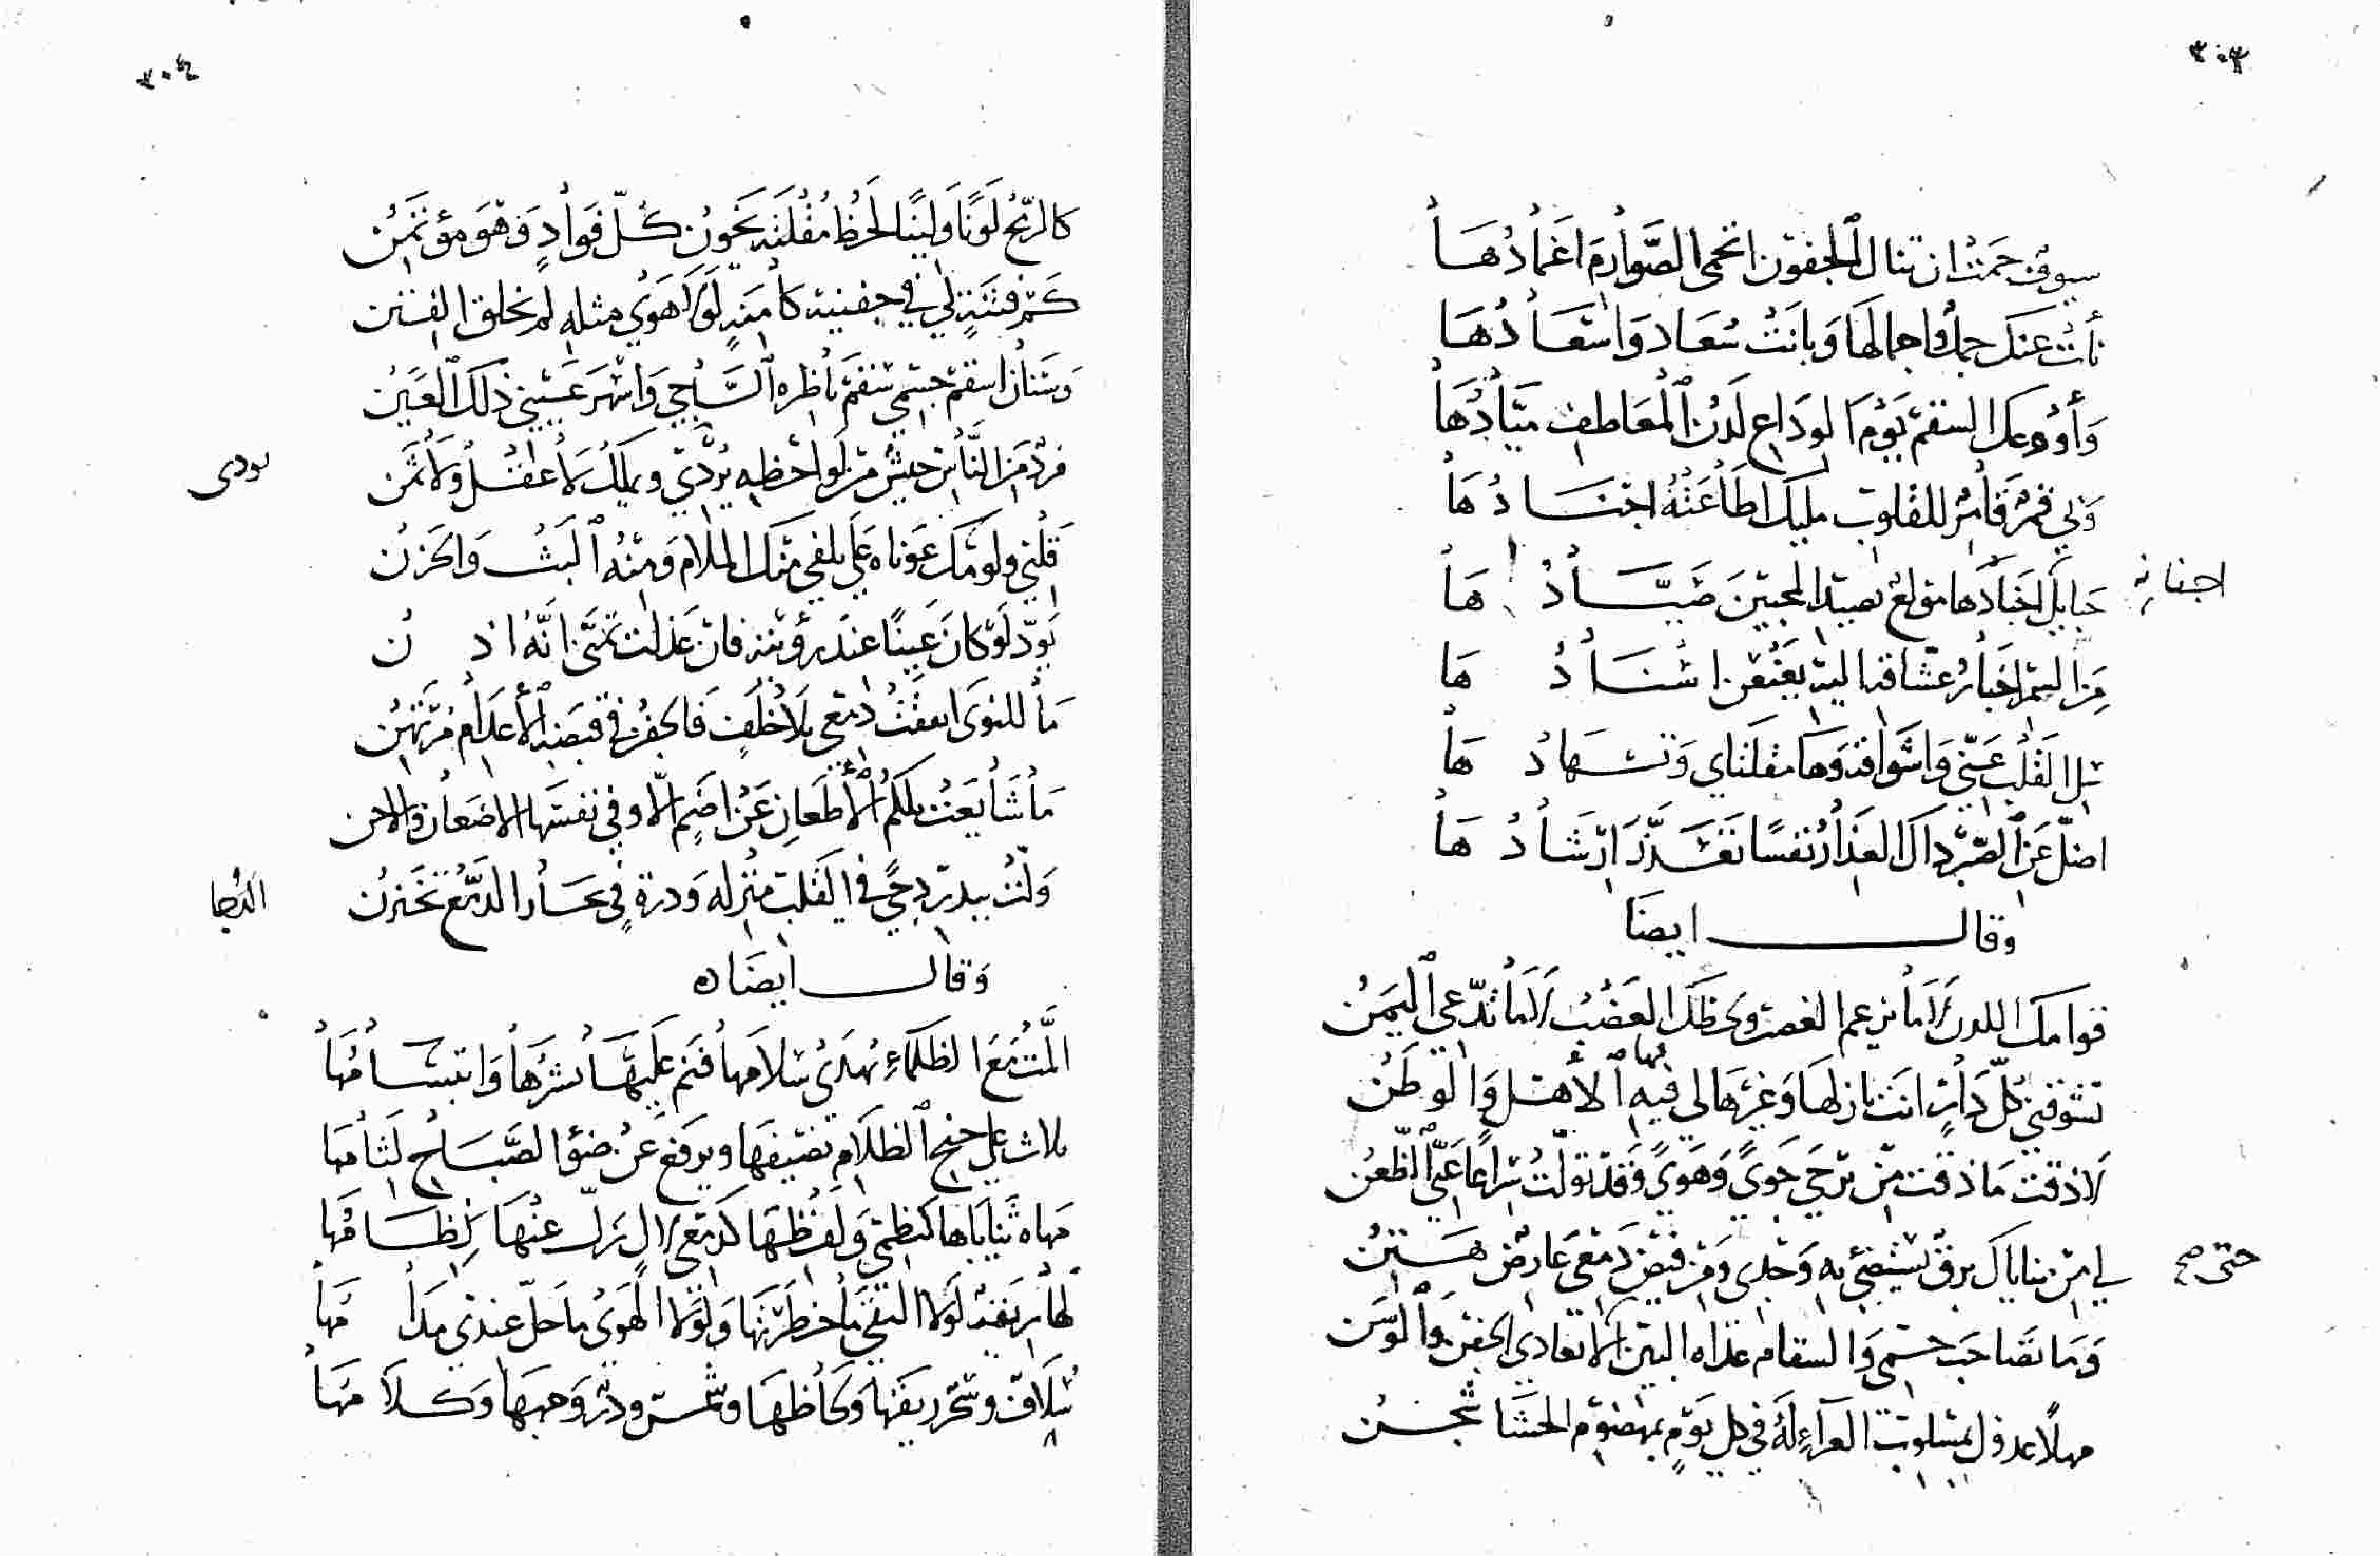 ٣٠٣
سيوف حمت ان تنال الجفون اتحمى الصوارم اغمادها
نأت عنك جمل واجمالها وبانت سعاد واسعادها
وأودعك السقم يوم الوداع لدن المعاطف ميادها
ولي قمر قامر للقلوب مليك اطاعته اجنادها
حبايل اجيادها مولع بصيد المحبين صيادها
اجفانه
من اليم اخبار عشاقه اليه يعنعن اسنادها
سل القلب عني واشواقه وها مقلتاي وتسهادها
اضل عن الصبر ذاك العذار نفسا تعذر ارشادها
وقال ايضا
قوامك اللدن لا ما يزعم الغصن ولحظك العضب لا ما تدعي اليمن
تشوقني كل دار انت نازلها وغيرها لي فيه الاهل والوطن
بها
لا ذقت ما ذقت من برحي جوى وهوى وقد تولت سراعا عني الظعن
لي من ثناياك برق يستضئ به وجدي ومن فيض دمعي عارض هتن
حتى صح
وما تصاحب جسمي والسقام غداه البين الا تعادى الجفن والوسن
مهلا عذول بمسلوب العزاء له في كل يوم بمهضوم الحشا شجن
٣٠٤
كالرمح لونا ولينا لحظ مقلته يخون كل فواد وهو مؤتمن
كم فتنة لي في جفنيه كامنة لولا هوى مثله لم تخلق الفتن
وسنان اسقم جسمي سقم ناظره الساجي واسهر عيني ذلك العين
فرد من الناس جيش من لواحظه يردي ويملك لا عقل ولا ثمن
يودي
قلبي ولومك عوناه علي يلفى منك الملام ومنه البث والحزن
يود لو كان عينا عند رؤيته فان عذلت تمنى انه اذن
ما للنوى انفقت دمعي بلا خلف فالجفن في قبضة الاعدام مرتهن
ما شايعت تلكم الاظعان عن اضم الا وفي نفسها الاضغان والاحن
ولت ببدر دجى في القلب منزله ودرة في بحار الدمع تختزن
الدجا
وقال ايضا
المت مع الظلماء تهدى سلامها فنم عليها نشرها وابتسامها
تلاث على جنح الظلام نصيفها ويرفع عن ضوء الصباح لثامها
مهاه ثناياها كنظمي ولفظها كدمعي لال زل عنها نظامها
لها ريقة لولا التقى ما خطرتها ولولا الهوى ما حل عندي مدامها
سلاف وسحر ريقها ولحاظها وشمس ودر وجهها وكلامها